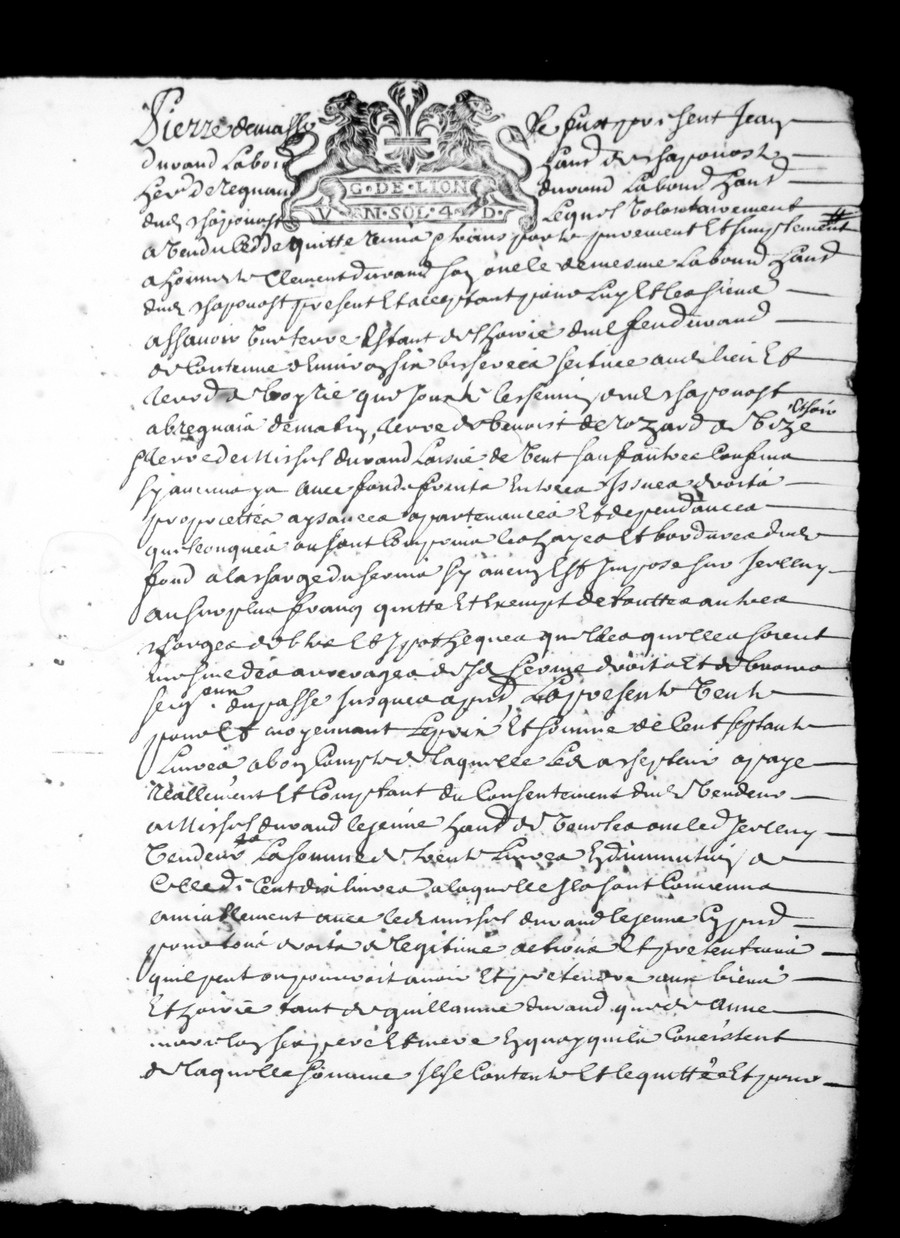 Pierre demasso le fust present Jean
durand Labour hant de chaponost
her de Regnau durand Labour hant
G·DE·LION
V N·SOL·4 D·
dud chaponost Lequel volontairement
a vendu cedde quitte remis purement Et simplement
a honneste Clement durand son oncle de mesme Labour hant
dud chaponost present Et acceptant pour luy Et les siens
assavoir une terre Estant de l'hoirie dud feu durand
de Contenue d'environ six bicherées scittuée aud lieu Et
terroir de que Jouxte le chemin dud chaponost
a bregnais de matin, terre de benoist de de bize
et hoir
p terre de Michel durand Laisné de vent sauf autres Confins
sy aucuns y a avec fonds fruits Entrées Issues droits
proprietés aysances apartenances Et dependances
quelconques ausont Comprins les hayes Et bordures dud
fond a la charge du servis sy aucun Est Imposé sur Jcelluy
au surplus franq quitte Et Exempt de touttes autres
charges debtes Et Ypotheques quelles quelles soient
mesme des arrerages dud servis droits Et debvoirs
seigneuriaux du passé jusques apnt, La presente vente
pour Et moyennant Le prix Et somme de Cent septante
Livres a bon Compte de laquelle Led accepteur a payé
reallement Et Comptant du Consentement dud vendeur
a Michel durand le jeune hant de aud Jcelluy
vendeur La somme de trente Livres En diminution de
Celle de Cent dix livres a laquelle Ils sont Convenus
amiablement avec led michel durand le jeune Cy pnt
pour tous droits de legitime actions Et pretentions
quil peut ou pourroit avoir Et pretendre aux biens
Et hoirie tant de guillaume durand que de Anne
pere Et mere En quoy quils Consistent
de laquelle somme Il se Contente Et le quitte Et pour